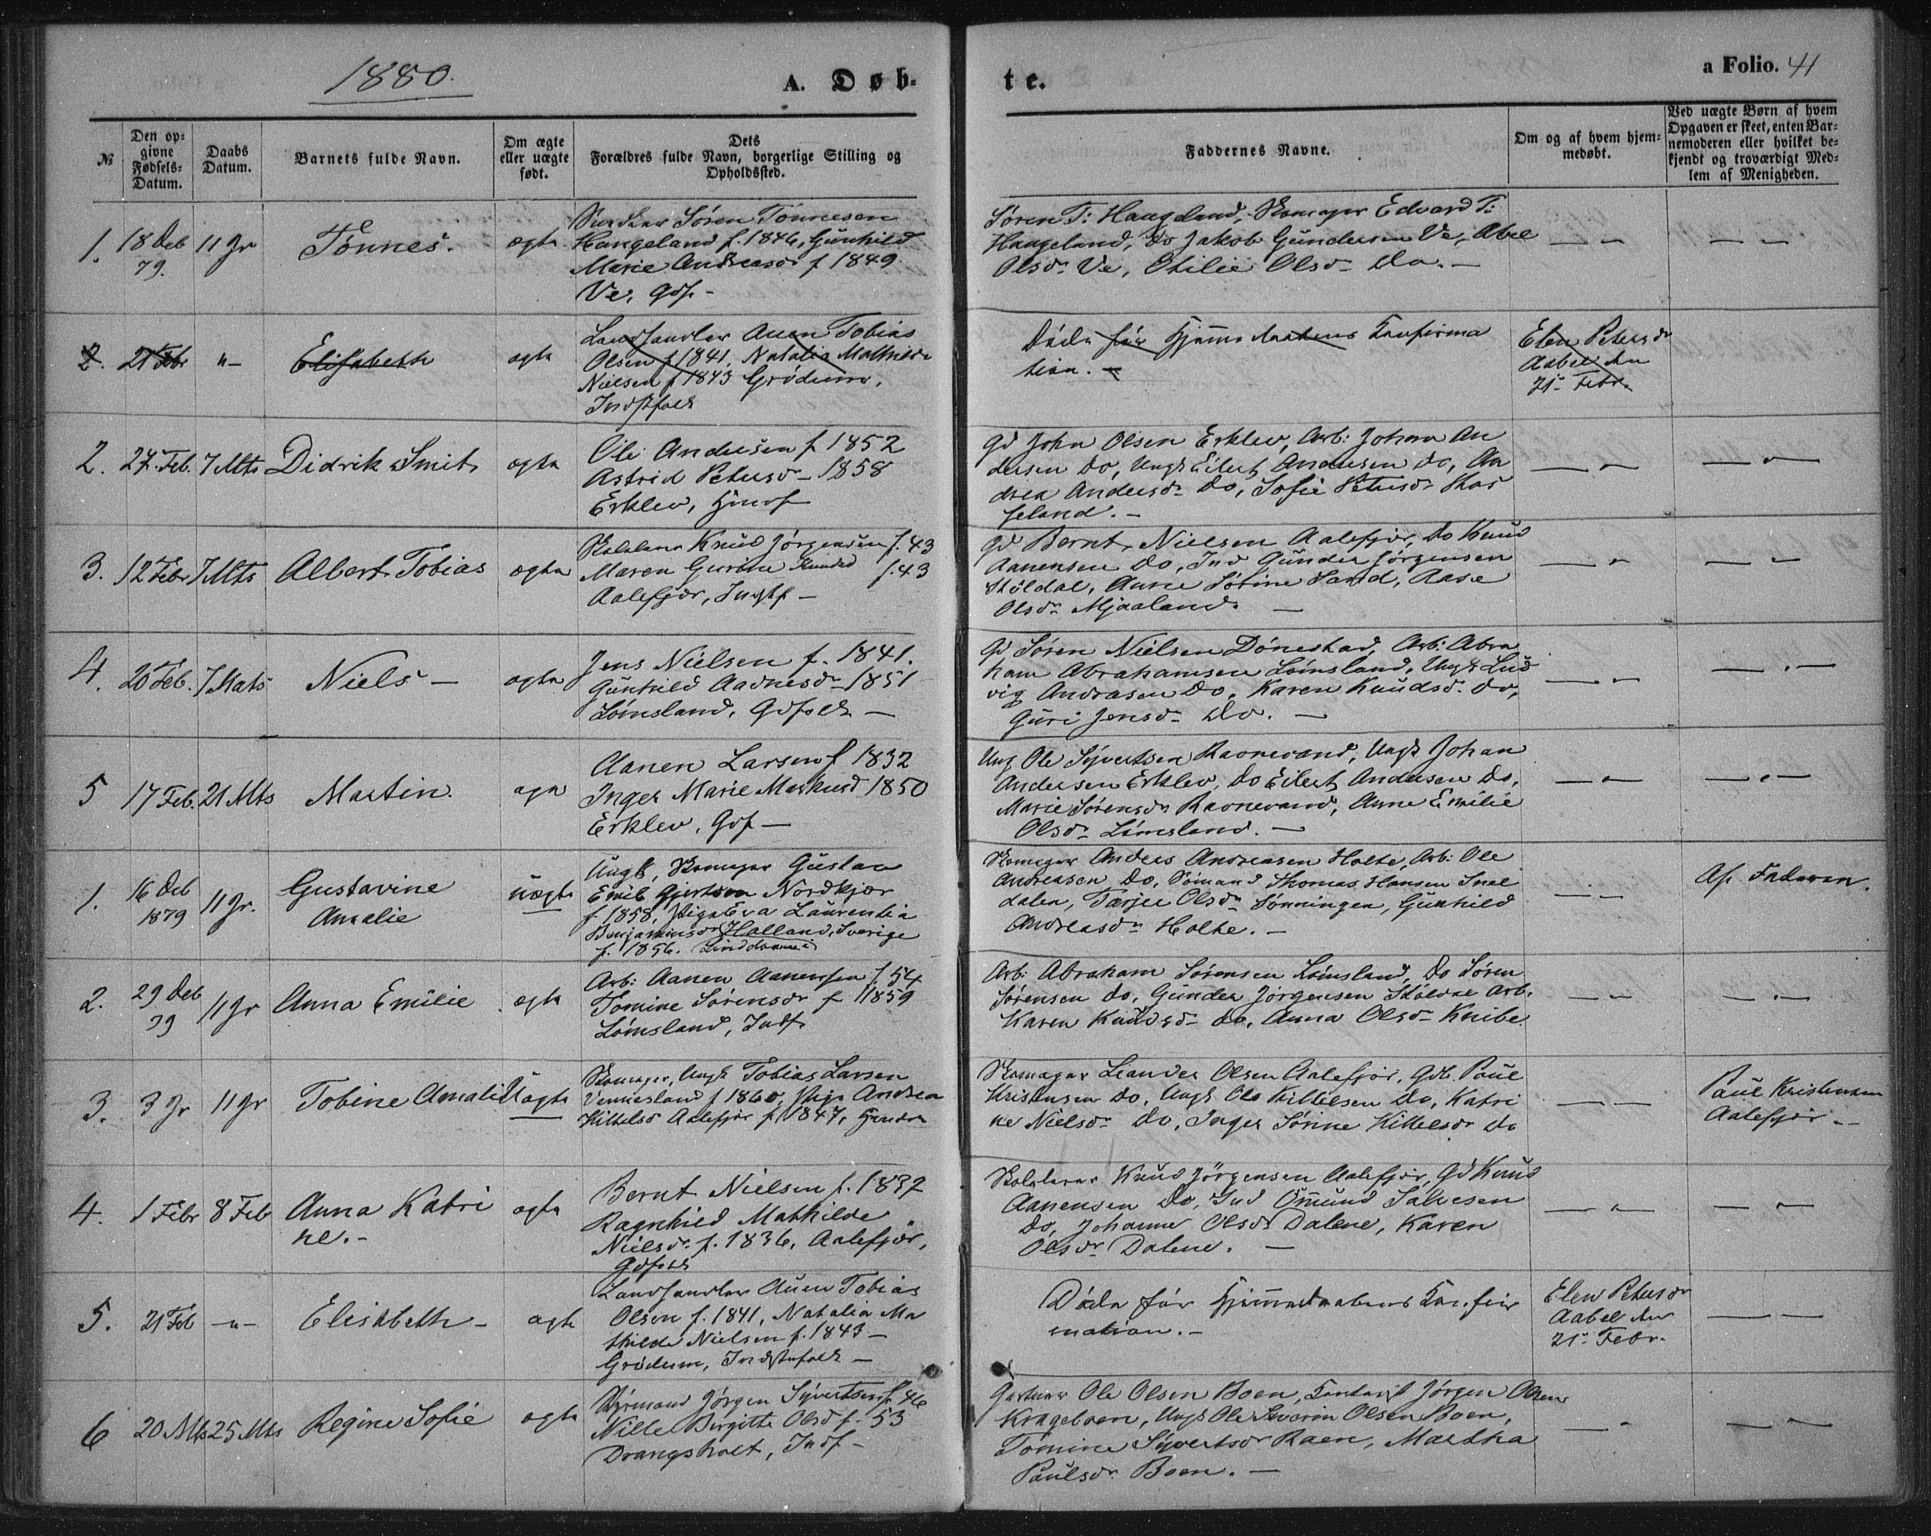 1880.
A. Døb-
te.
a Folio. 41
№
Den op-
givne
Fødsels-
Datum.
Daabs
Datum.
Barnets fulde Navn.
Om ægte
eller uægte
født.
Dets
Forældres fulde Navn, borgerlige Stilling og
Opholdssted.
Faddernes Navne.
Om og af hvem hjem-
medøbt.
Ved uægte Børn af hvem
Opgaven er skeet, enten Bar-
nemoderen eller hvilket be-
kjendt og troværdigt Med-
lem af Menigheden.
1. 18 Deb 79. 11 Jr Tönnes. ægte
Søren Tönnesen
Haugeland f. 1846, Gunhild
Marie Andreasdr f 1849.
Ve, Gdf -
Søren T: Haugeland, Skomager Edvard T:
Haugeland, Do Jakob Gundersen Ve, Abel
Olsdr Ve, Otilie Olsdr Do. -
2. 21 Febr "- Elisabeth ægte
Landhandler Auen Tobias
Olsen f 1841, Natalia Mathilde
Nielsen f 1843 Grödum,
Indstfolk
Døde før Hjemmedaabens Konfirma
tion. -
Elen Petersdr
Aabel den
21- Febr.
2. 27. Feb. 7 Mts Didrik Smit ægte
Ole Andersen f 1852
Astrid Petersdr - 1858
Erklev,
Gd John Olsen Erklev, Arb: Johan An
dersen Do, Ungk Eilert Andersen Do, An
drea Andersdr Do, Sofie Petersdr Hos
seland. -
3. 12 Febr 7 Mts Albert Tobias ægte
Skolelærer Knud Jörgensen f. 43
Maren Gurine Knudsd f. 43
Aalefjær, Instf -
Gd Bernt Nielsen Aalefjær, Do Knud
Aanensen Do, Ind Gunder Jørgensen
Stöldal, Anne Sørine Sand, Aase
Olsdr Mjaaland. -
4. 20 Feb. 7 Mats Niels - ægte
Jens Nielsen f. 1841.
Gunhild Aadnesdr - 1851
Lömsland, Gdfolk -
Gd Søren Nielsen Dönestad, Arb: Abra
ham Abrahamsen Lömsland, Ungk Lud
vig Andrasen Do, Karen Knudsdr Do,
Guri Jensdr Do. -
5 17 Feb. 21 Mts Martin. ægte
Aanen Larsen f 1832
Inger Marie Markusd 1850
Erklev, Gdf -
Ung Ole Syvertsen Ravnevand, Ungk Johan
Andersen Erklev, Do Eilert Andersen Do,
Marie Sørensdr Ravnevand, Anne Emilie
Olsdr Lömsland. -
1. 16 Deb 1879 11 Jr. Gustavine
Amalie uægte
Ungk, Skomager Gustav
Emil Gjertsen Nordkjær
f 1858, Pige Eva Laurentia
Benjaminsdr Halland, Sverige
f. 1856.
Skomager Anders Andreasen Holte, Arb: Ole
Andreasen Do, Sömand Thomas Hansen Snel
dalen, Tarjer Olsdr Lönningen, Gunhild
Andreasdr Holte. -
Af Faderen.
2. 29 Deb 79 11 Jr Anna Emilie ægte
Arb: Aanen Aanensen f 54
Tomine Sørensdr f 1859
Lömsland, Indf
Arb: Abraham Sørensen Lömsland, Do Søren
Sørensen Do, Gunder Jørgensen Stöldal Arb.
Karen Knudsdr Do, Anna Olsdr Knibe
3. 3 Jr 11 Jr Tobine Amalie Uægte
Skomager, Ungk Tobias Larsen
Vennesland f 1860, Pige Andrea
Kittelsd Aalefjær f 1847,
Skomager Leander Olsen Aalefjær, Gdb. Paul
Kristensen Do, Ungk Ole Kittelsen Do, Katri
ne Nielsdr Do, Inger Sörine Kittelsdr Do
Paul Kristensen
Aalefjær. -
4. 1 Febr 8 Feb Anna Katri
ne. - ægte
Bernt Nielsen f. 1832
Ragnhild Mathilde
Nielsdr f. 1836, Aalefjær,
Gdfolk
Skolelærer Knud Jörgensen Aalefjær, Gd Knud
Aanensen Do, Ind Omund Salvesen
Do, Johanne Olsdr Dalene, Karen
Olsdr Dalene. -
5. 21 Feb -"- Elisabeth - ægte
Landhandler Auen Tobias
Olsen f. 1841, Natalia Ma
thilde Nielsen f. 1843 -
Grödum, Indstfolk -
Døde før Hjemmedaabens Konfir
mation. -
Elen Petersdr
Aabel den
21- Febr.
6 20 Mts 25 Mts Regine Sofie ægte
Styrmand Jörgen Syvertsen f. 46
Nille Birgitte Olsd f. 53
Drangsholt, Indf -
Gartner Ole Olsen Boen, Jørgen Olsen
Krageboen, Ungk Ole Severin Olsen Boen,
Tomine Syvertsdr Raen, Martha
Paulsdr Boen. -